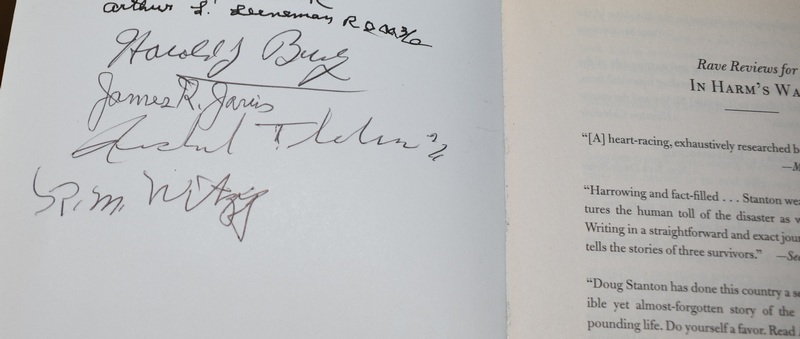 Arthur L. Leeneman R
Harold J Bray
James R. Jarvis
R.M.
Rave Reviews for
IN HARM'S WA
"[A] heart-racing, exhaustively researched b
—M
"Harrowing and fact-filled . . . Stanton wea
tures the human toll of the disaster as v
Writing in a straightforward and exact jour
tells the stories of three survivors." —Sea
"Doug Stanton has done this country a se
ible yet almost-forgotten story of the
pounding life. Do yourself a favor. Read